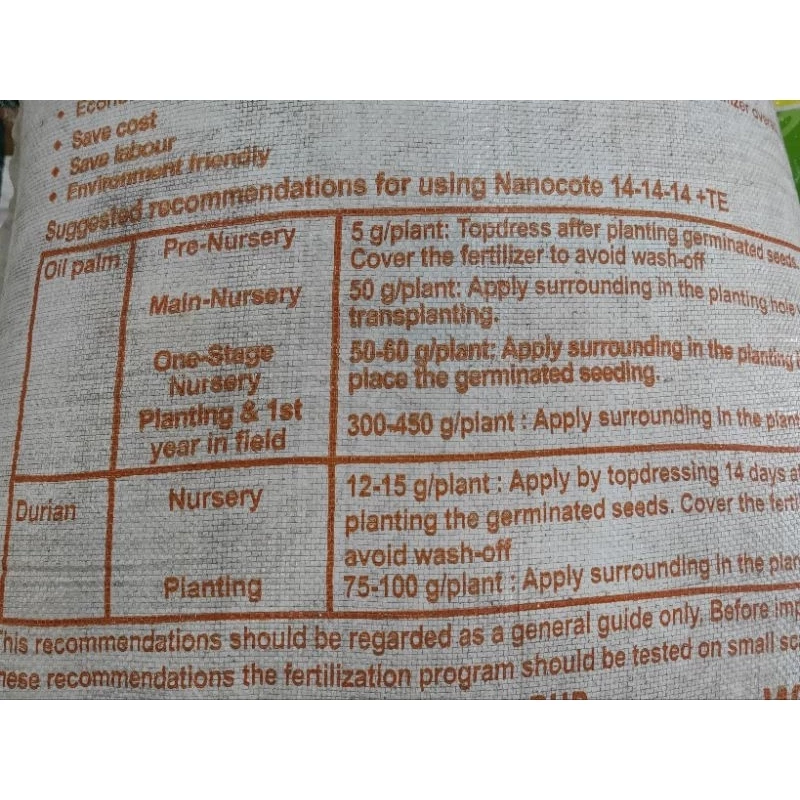 • Econ
• Save cost
• Save labour
• Environment friendly
Suggested recommendations for using Nanocote 14-14-14 +TE
Oil palm
Pre-Nursery
5 g/plant: Topdress after planting germinated seeds.
Cover the fertilizer to avoid wash-off
Main-Nursery
50 g/plant: Apply surrounding in the planting hole
transplanting.
One-Stage
Nursery
50-60 g/plant: Apply surrounding in the planting
place the germinated seeding.
Planting & 1st
year in field
300-450 g/plant : Apply surrounding in the plant
Durian
Nursery
12-15 g/plant : Apply by topdressing 14 days a
planting the germinated seeds. Cover the ferti
avoid wash-off
Planting
75-100 g/plant : Apply surrounding in the plan
This recommendations should be regarded as a general guide only, Before imp
hese recommendations the fertilization program should be tested on small sc